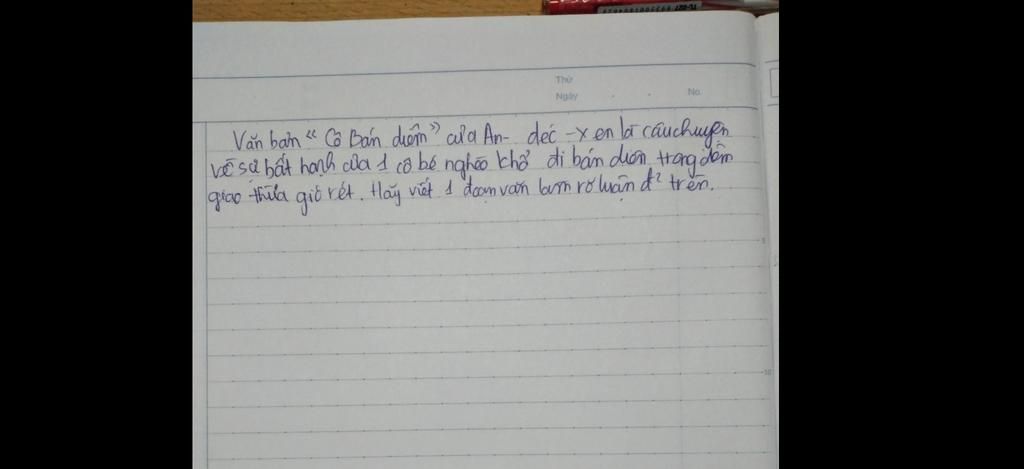 Thứ
Ngày No.
Văn bản “Cô Bán diêm” của An- déc -xen là câu chuyện
về sự bất hạnh của 1 cô bé nghèo khổ đi bán diêm trong đêm
giao thừa giỏ rét. Hãy viết 1 đoạn văn làm rõ luận đ² trên.
5
10